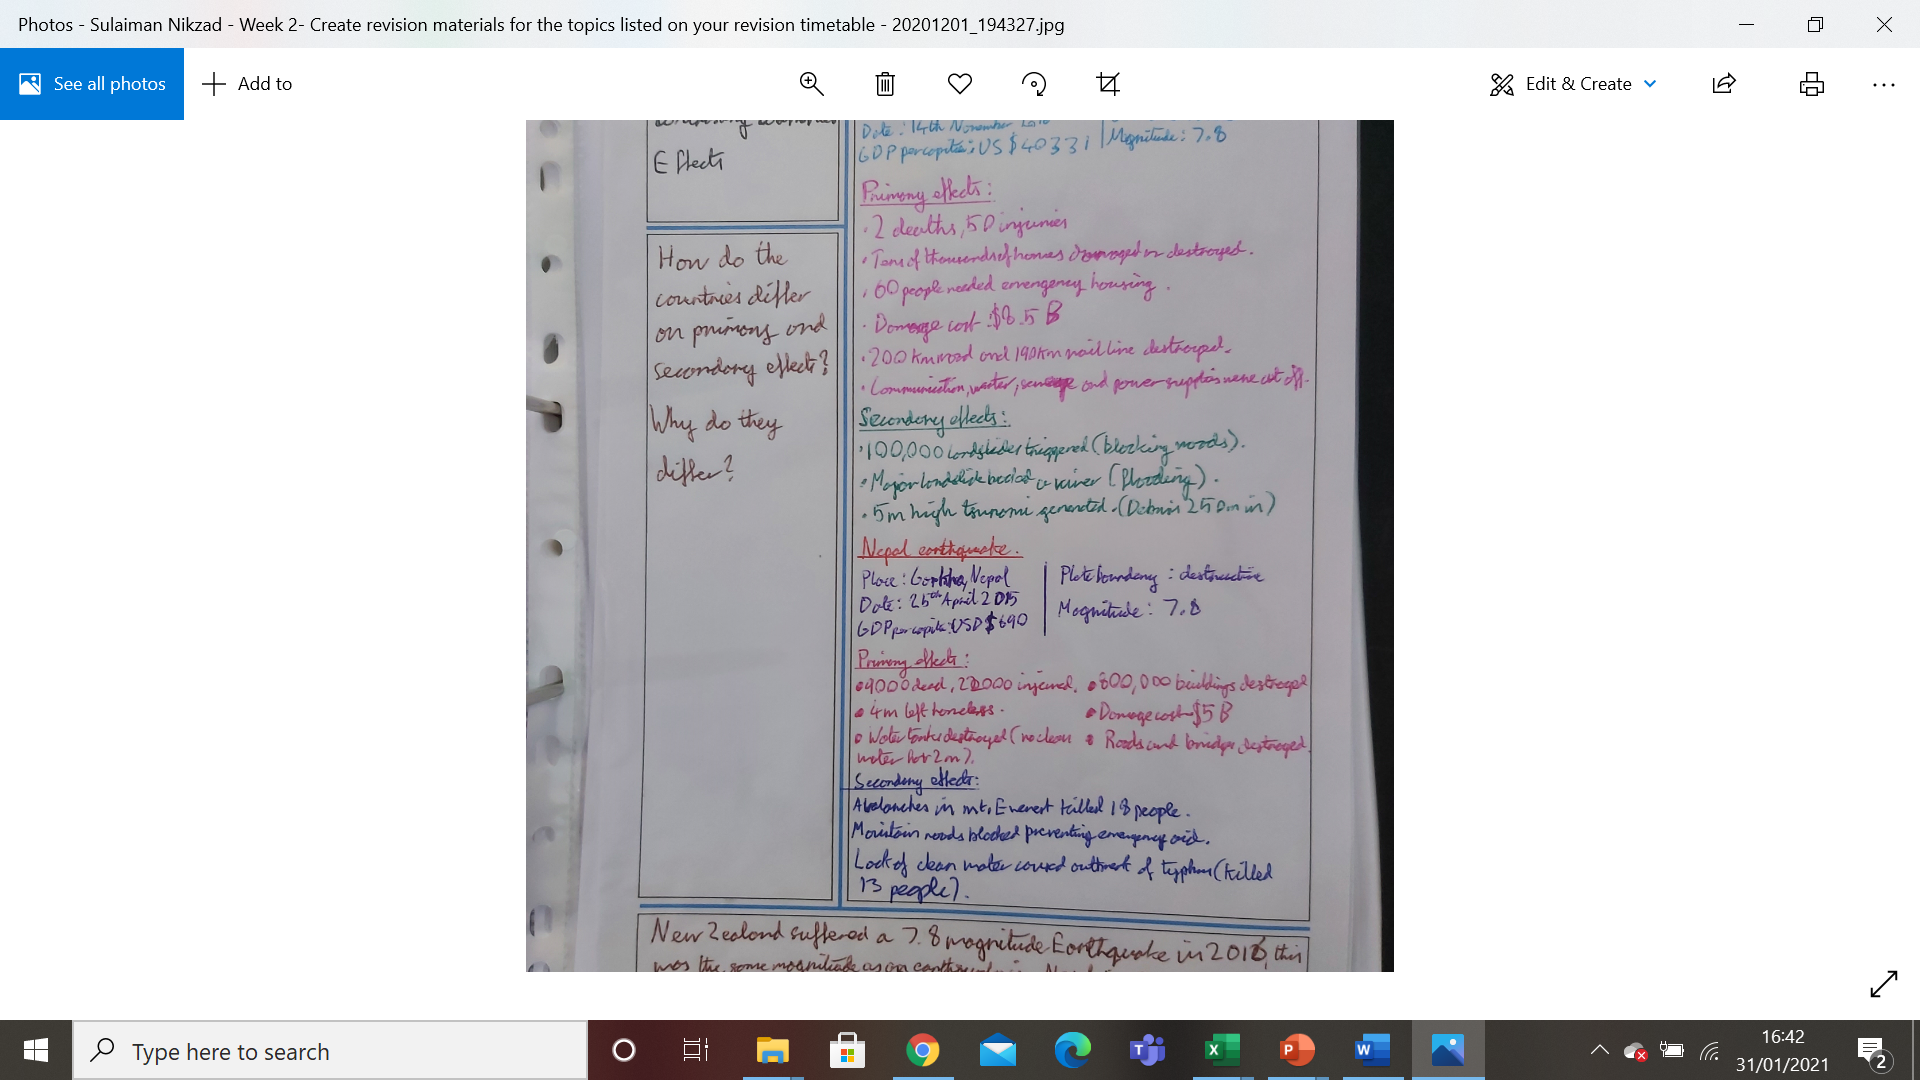 Photos - Sulaiman Nikzad - Week 2- Create revision materials for the topics listed on your revision timetable - 20201201_194327.jpg
See all photos
Add to
Edit & Create
Effects
Date: 14th November
GDP per capita: US $40331
Magnitude: 7.8
Primary effects:
· 2 deaths, 50 injuries
· Tens of thousands of homes damaged or destroyed.
· 60 people needed emergency housing.
· Damage cost: $8.5 B
· 200 km road and 190km rail line destroyed.
· Communication, water, sewage and power supplies were cut off.
Secondary effects:
· 100,000 landslides triggered (blocking roads).
· Major landslide a river (flooding).
· 5m high tsunami generated. (Debris 250m in)
How do the
countries differ
on primary and
secondary effects?
Why do they
differ?
Nepal earthquake.
Place: Gorkha, Nepal
Date: 25th April 2015
GDP per capita: USD $690
Plate boundary: destructive
Magnitude: 7.8
Primary effects:
• 9000 dead, 22000 injured.
• 800,000 buildings destroyed
• 4m left homeless.
• Damage cost $5 B
• Water tanks destroyed (no clean
water for 2m).
• Roads and bridges destroyed.
Secondary effects:
Avalanches in mt. Everest killed 18 people.
Mountain roads blocked preventing emergency aid.
Lack of clean water caused outbreak of (killed
13 people).
New Zealand suffered a 7.8 magnitude Earthquake in 2016, this
was the same magnitude as an
Type here to search
16:42
31/01/2021
2